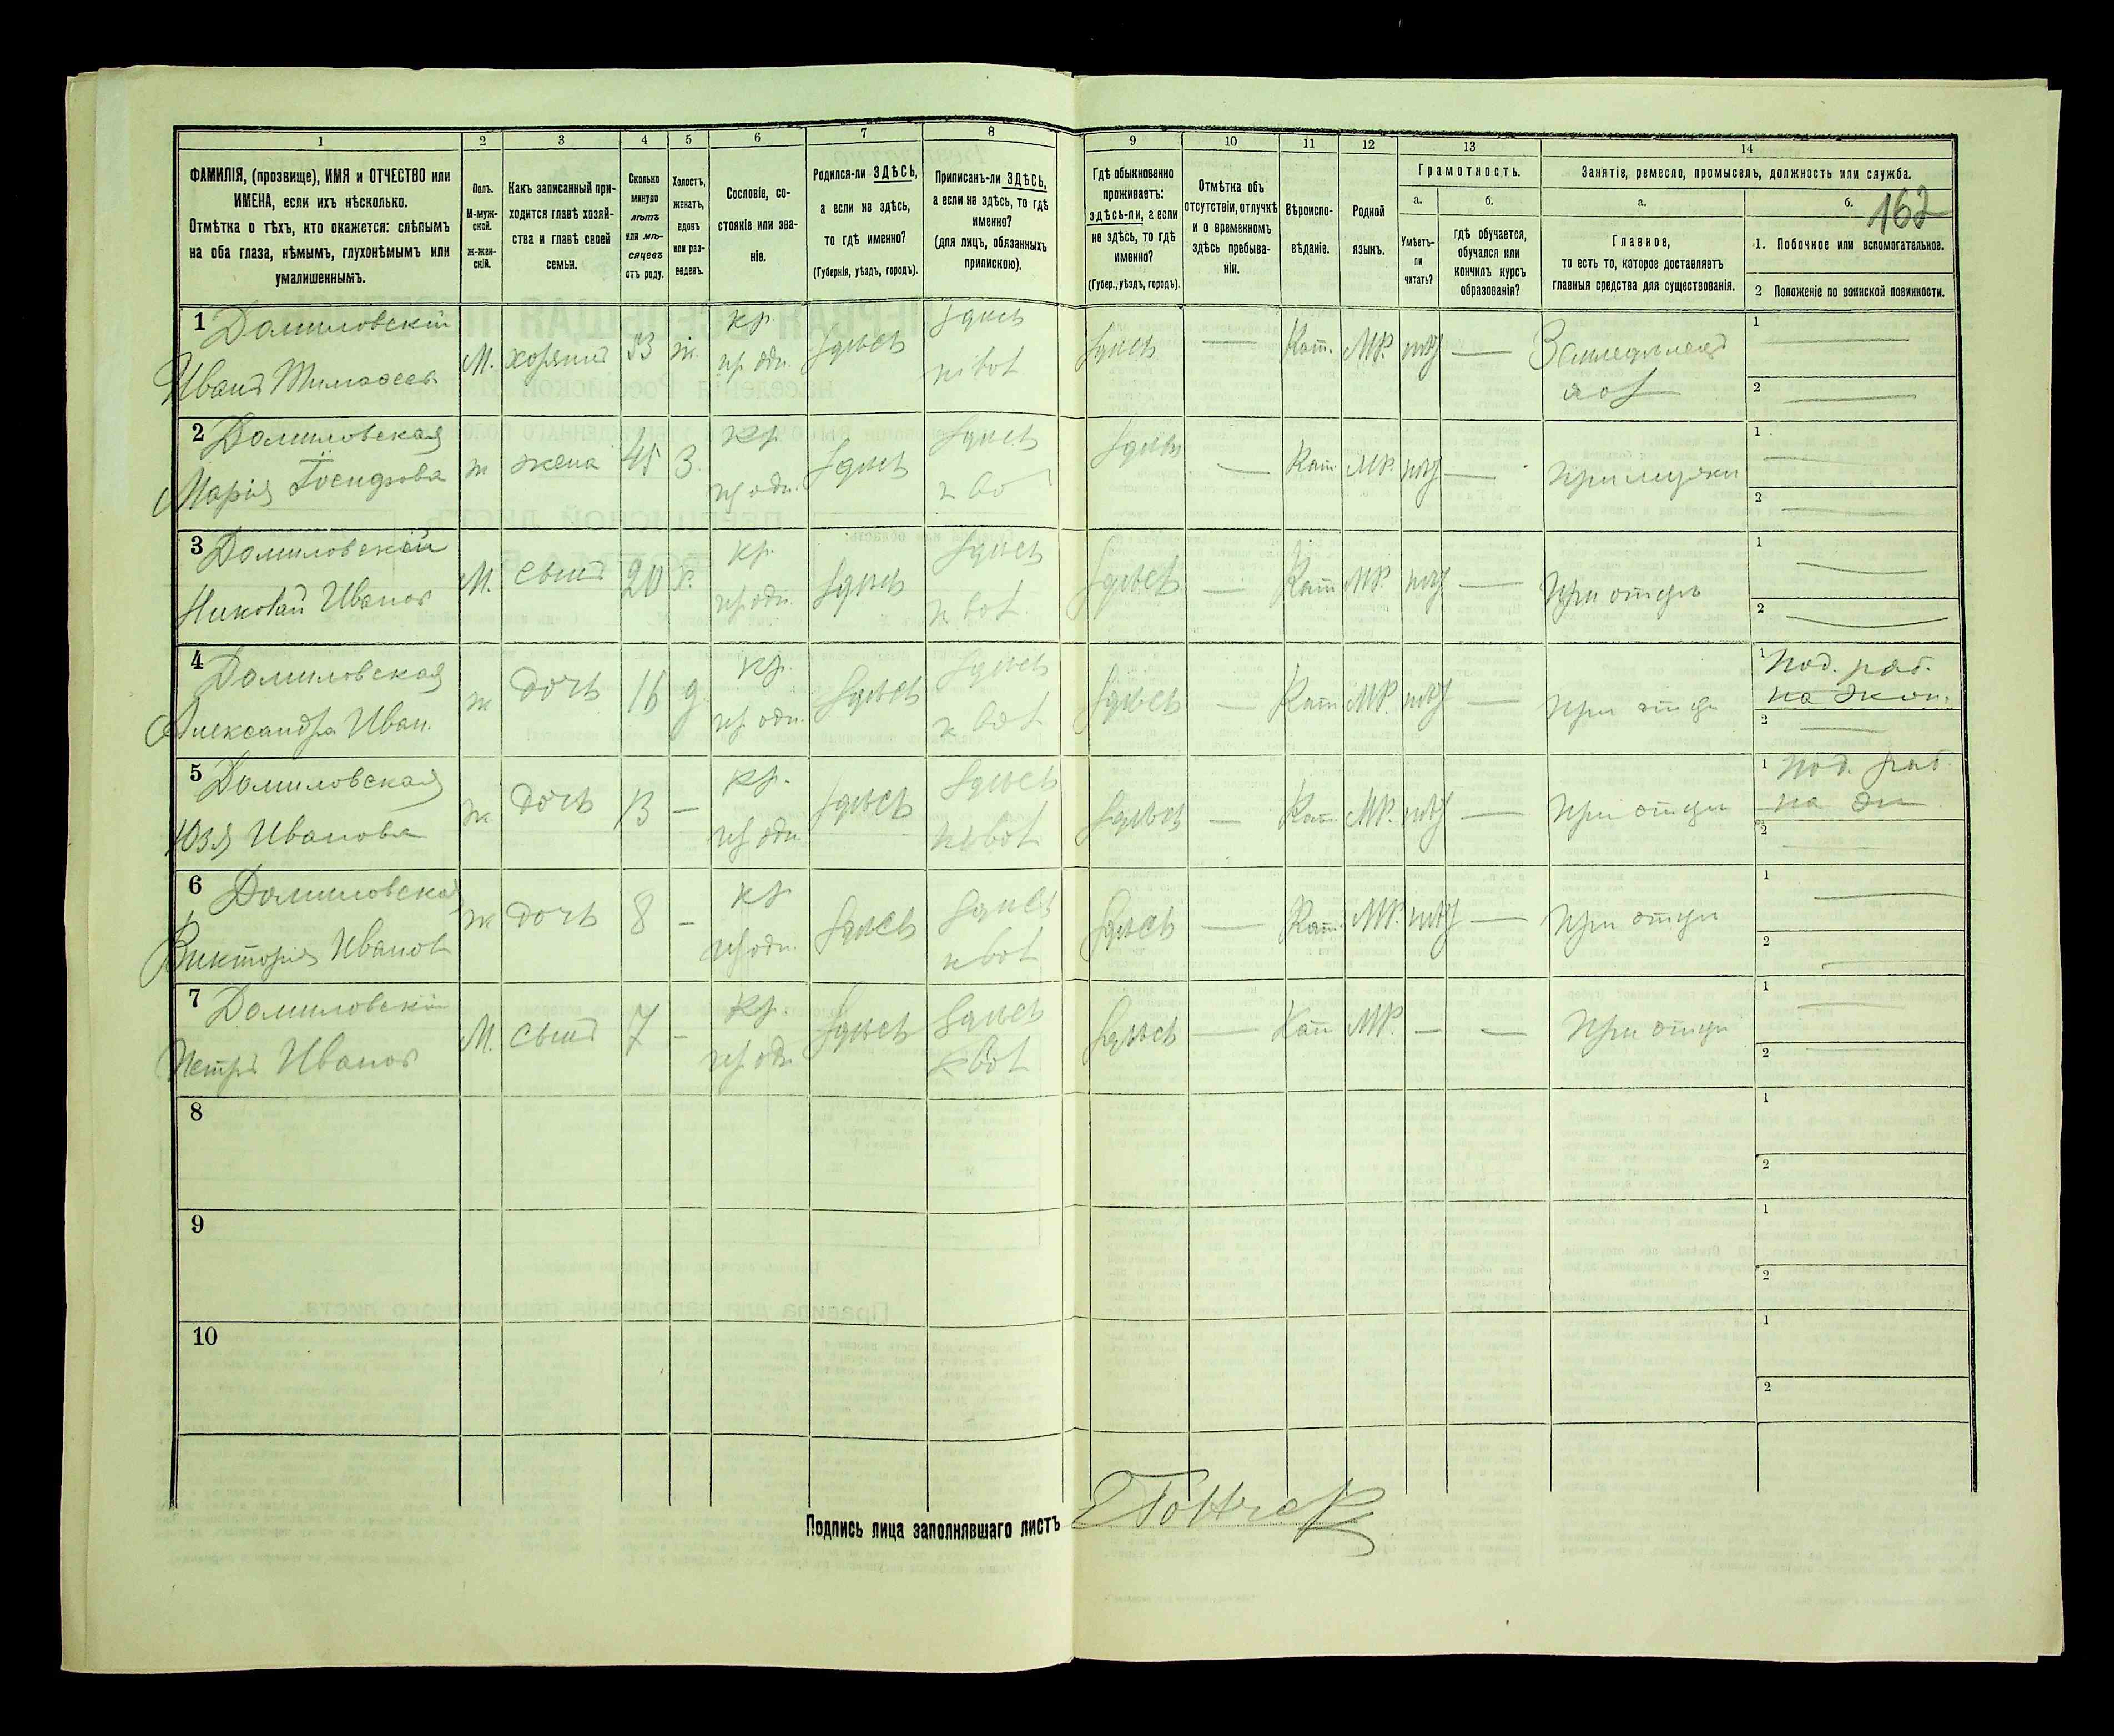 1
2
3
4
5
6
7
8
ФАМИЛІЯ, (прозвище), ИМЯ и ОТЧЕСТВО или
ИМЕНА, если ихъ нѣсколько.
Отмѣтка о тѣхъ, кто окажется: слѣпымъ
на оба глаза, нѣмымъ, глухонѣмымъ или
умалишеннымъ.
Полъ.
М-муж-
ской.
ж-жен-
скій.
Какъ записанный при-
ходится главѣ хозяй-
ства и главѣ своей
семьи.
Сколько
минуло
лѣтъ
или мѣ-
сяцевъ
отъ роду.
Холостъ,
женатъ,
вдовъ
или раз-
веденъ.
Сословіе, со-
стояніе или зва-
ніе.
Родился-ли ЗДѢСЬ,
а если не здѣсь,
то гдѣ именно?
(Губернія, уѣздъ, городъ).
Приписанъ-ли ЗДѢСЬ,
а если не здѣсь, то гдѣ
именно?
(для лицъ, обязанныхъ
припискою).
9
10
11
12
13
14
Гдѣ обыкновенно
проживаетъ:
здѣсь-ли, а если
не здѣсь, то гдѣ
именно?
(Губер., уѣздъ, городъ).
Отмѣтка объ
отсутствіи, отлучкѣ
и о временномъ
здѣсь пребыва-
ніи.
Вѣроиспо-
вѣданіе.
Родной
языкъ.
Грамотность.
а.
Умѣетъ-
ли
читать?
б.
гдѣ обучается,
обучался или
кончилъ курсъ
образованія?
Занятіе, ремесло, промыселъ, должность или служба.
а.
Главное,
то есть то, которое доставляетъ
главныя средства для существованія.
б.
162
1. Побочное или вспомогательное.
2 Положеніе по воинской повинности.
1 Домиловскій
Иванъ Тимофеев
М. хозяинъ 53 ж. кр. здѣсь здѣсь здѣсь — Кат. МР. — Земледѣлецъ
1 —
2 —
2 Домиловская
Марія
ж жена 45 З. кр. здѣсь здѣсь здѣсь — Кат. МР. — при мужѣ
1 —
2 —
3 Домиловскій
Николай Иванов
М. сынъ 20 х. кр. здѣсь здѣсь здѣсь — Кат МР. — при отцѣ
1 —
2 —
4 Домиловская
Александра Иван.
ж дочь 16 д. кр. здѣсь здѣсь здѣсь — Кат МР. — при отцѣ
1 Под. раб.
на экон.
2 —
5 Домиловская
Юзя Иванова
ж дочь 13 — кр. здѣсь здѣсь здѣсь — Кат. МР. — при отцѣ
1 под. раб.
на эк
2 —
6 Домиловская
Викторія Иванов
ж дочь 8 — кр здѣсь здѣсь здѣсь — Кат. МР. — при отцѣ
1 —
2 —
7 Домиловскій
Петръ Иванов
М. сынъ 7 — кр. здѣсь здѣсь здѣсь — Кат МР. — — при отцѣ
1 —
2 —
8
1
2
9
1
2
10
1
2
Подпись лица заполнявшаго листъ